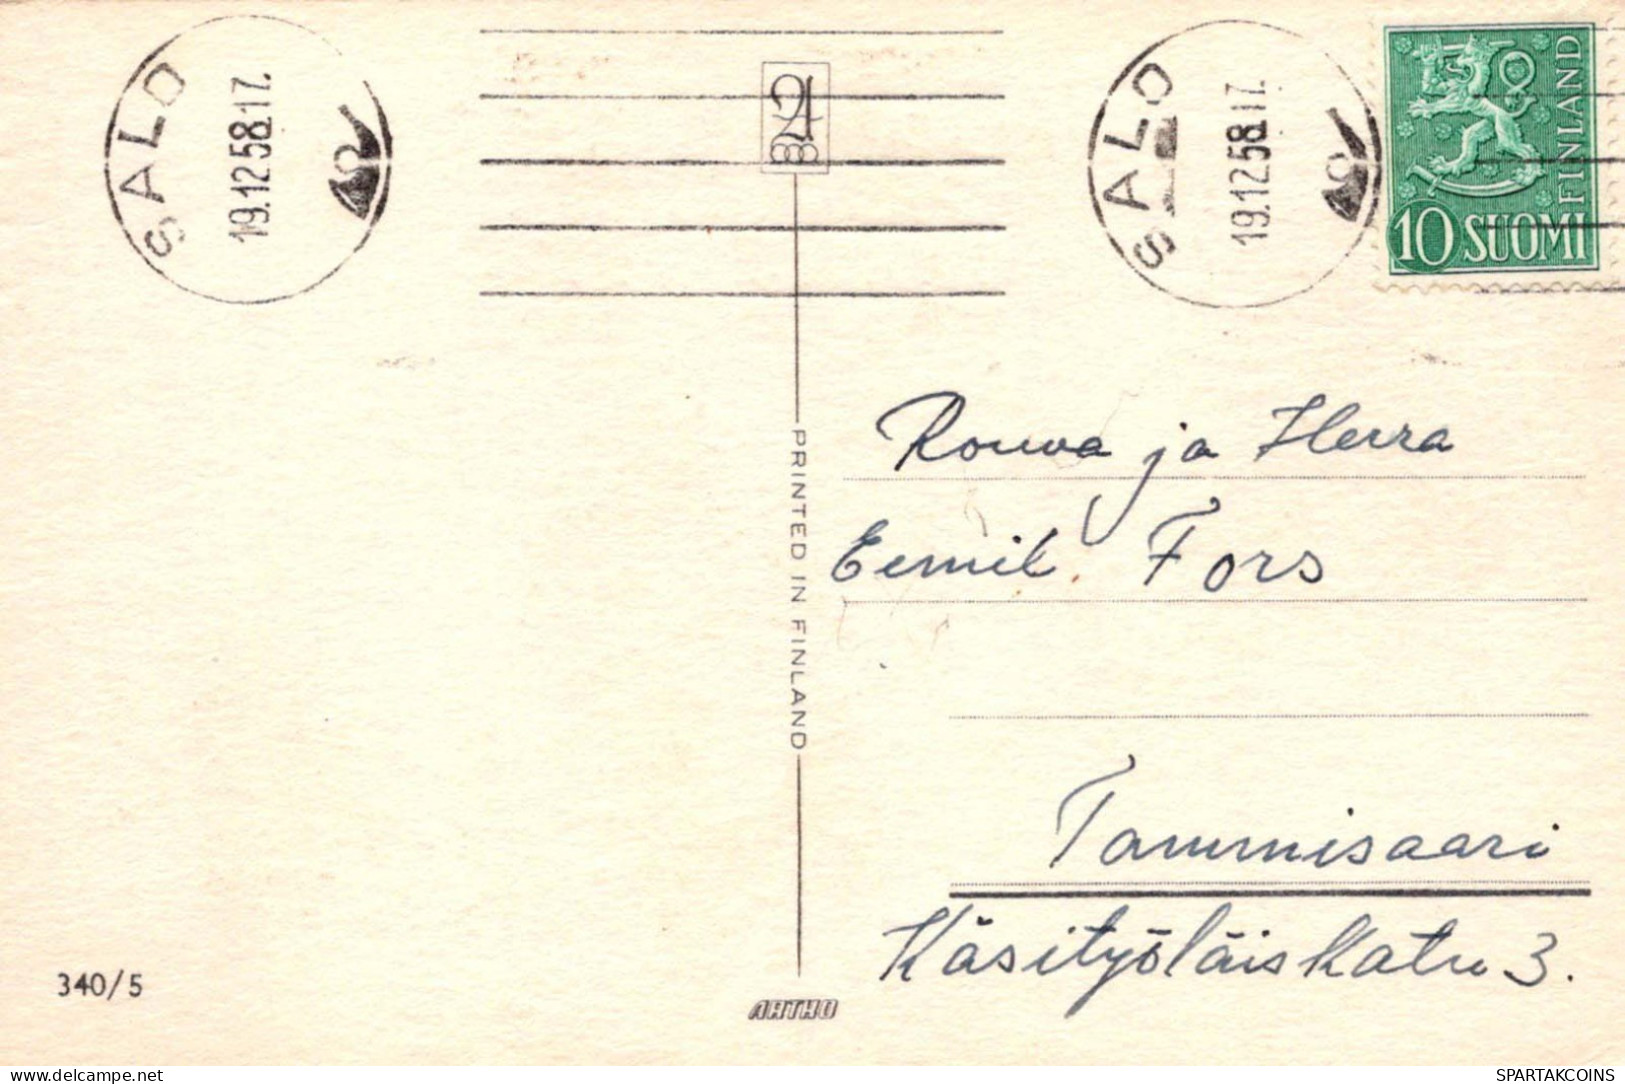 SALO
19.12.58.17.
SALO
19.12.58.17.
FINLAND
10 SUOMI
Rouva ja Herra
Eemil Fors
Tammisaari
Käsityöläiskatu 3.
PRINTED IN FINLAND
340/5
ARTHO
delcampe.net
SPARTAKCOINS